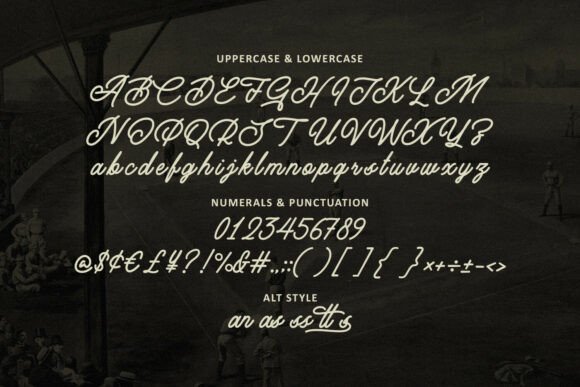 UPPERCASE & LOWERCASE
ABCDEFGHIJKLM
NOPQRSTUVWXYZ
abcdefghijklmnopqrstuvwxyz
NUMERALS & PUNCTUATION
0123456789
@$¢€£¥?!%&#.,;:( )[ ]{ }×+÷±-<>
ALT STYLE
an as ss tt s